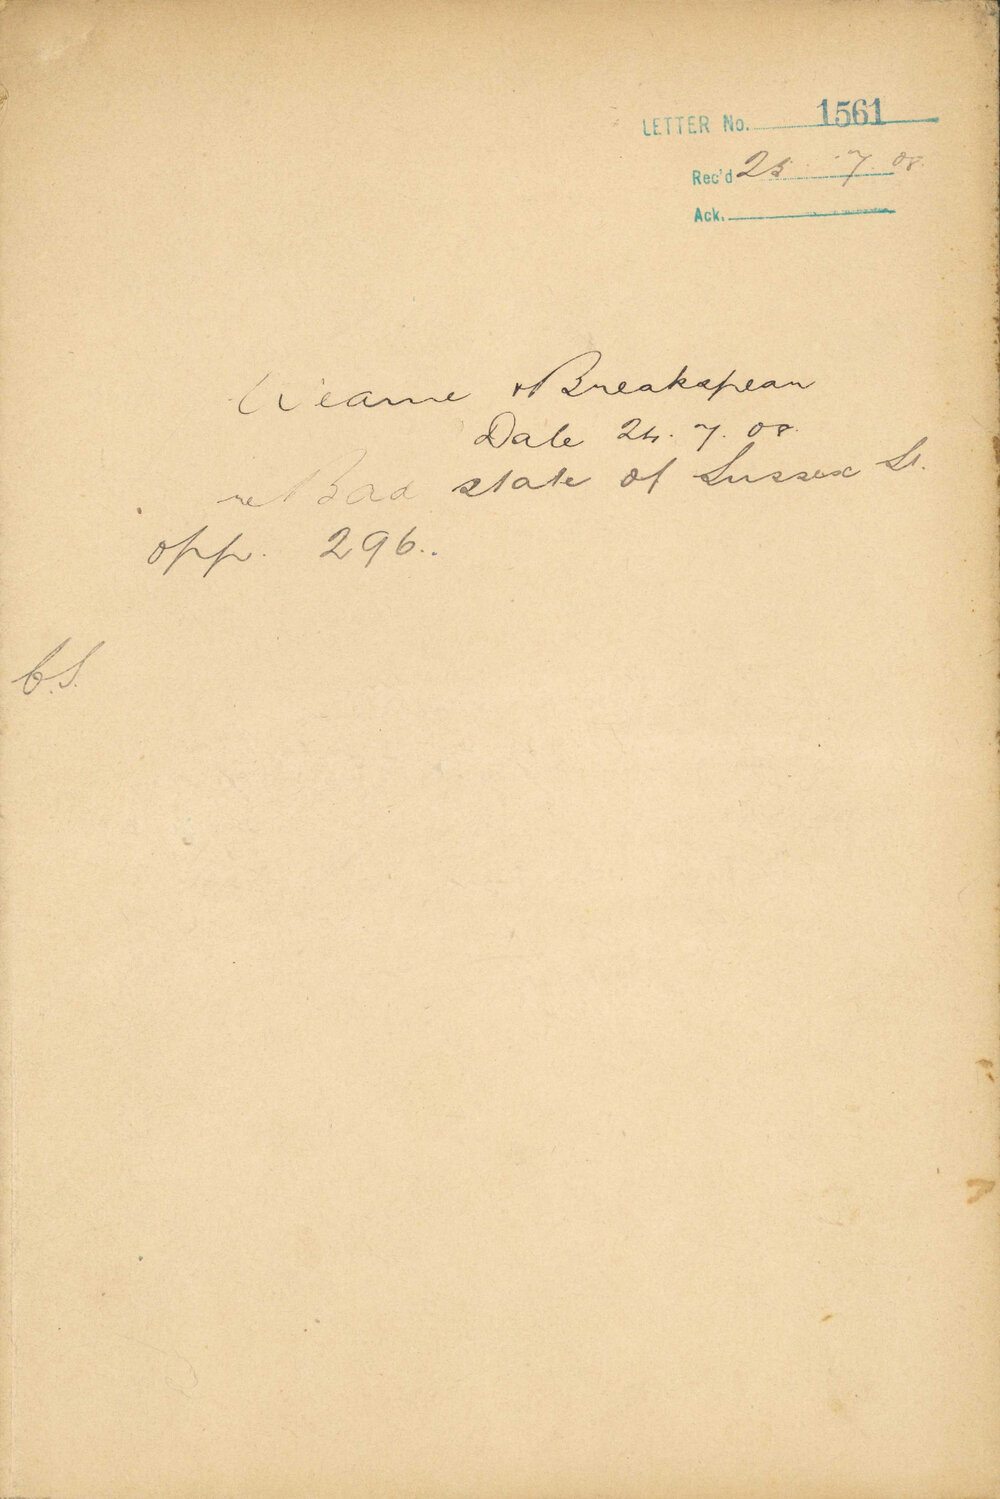 LETTER No. 1561
Rec'd 25. 7. 08.
Ack.
Wearne & Breakspear
Date 24. 7. 08.
re Bad state of Sussex St.
opp. 296.
C.S.